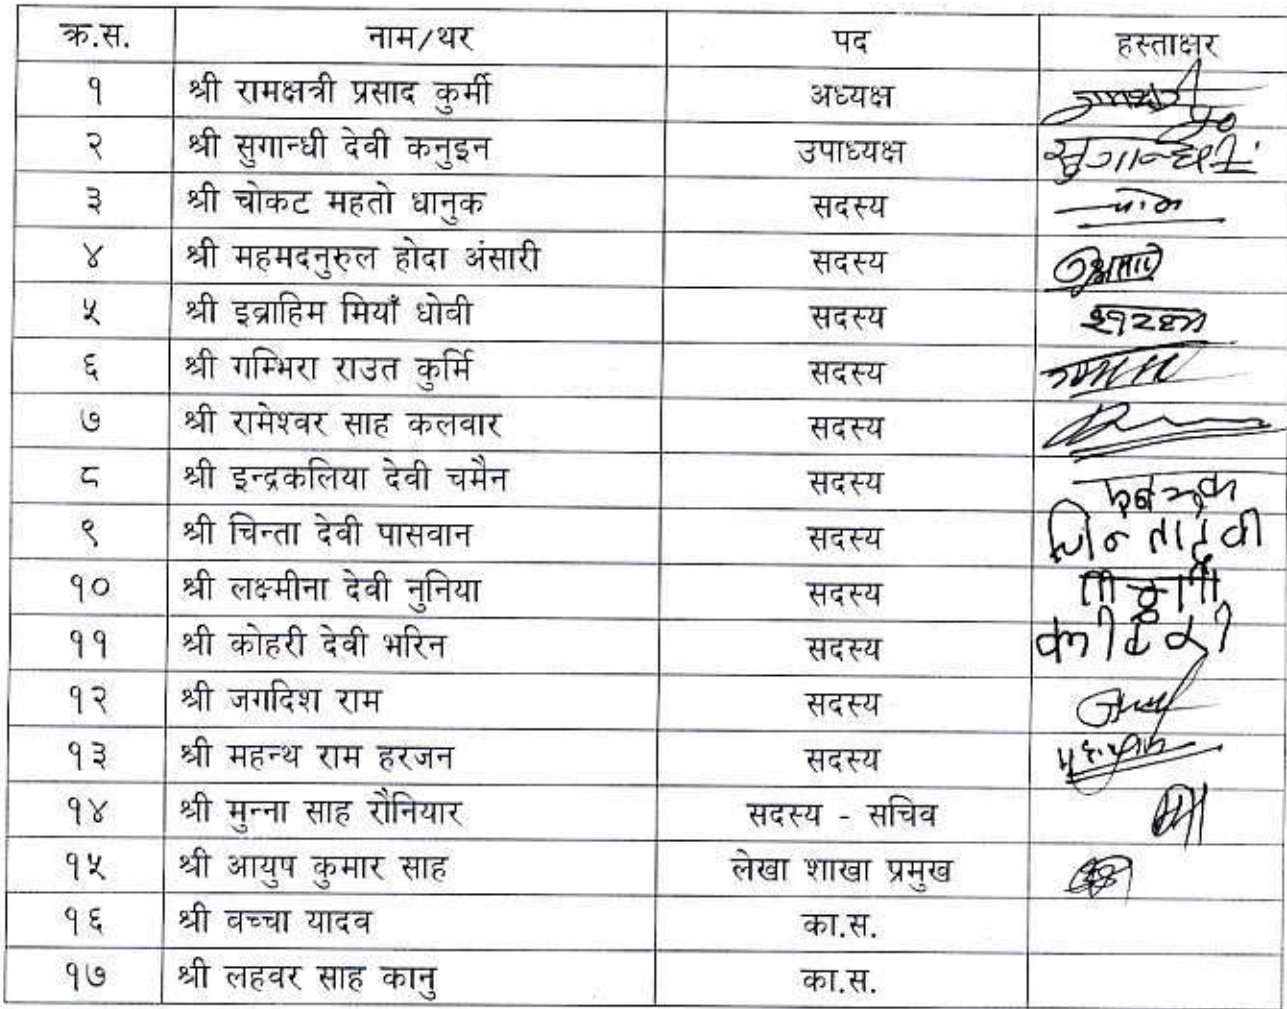 क्र.स. नाम/थर पद हस्ताक्षर
१ श्री रामक्षत्री प्रसाद कुर्मी अध्यक्ष
२ श्री सुगान्धी देवी कनुइन उपाध्यक्ष सुगान्धी
३ श्री चोकट महतो धानुक सदस्य
४ श्री महमदनुरुल होदा अंसारी सदस्य
५ श्री इब्राहिम मियाँ धोवी सदस्य
६ श्री गम्भिरा राउत कुर्मि सदस्य
७ श्री रामेश्वर साह कलवार सदस्य
८ श्री इन्द्रकलिया देवी चमैन सदस्य
९ श्री चिन्ता देवी पासवान सदस्य
१० श्री लक्ष्मीना देवी नुनिया सदस्य
११ श्री कोहरी देवी भरिन सदस्य
१२ श्री जगदिश राम सदस्य
१३ श्री महन्थ राम हरजन सदस्य
१४ श्री मुन्ना साह रौनियार सदस्य - सचिव
१५ श्री आयुष कुमार साह लेखा शाखा प्रमुख
१६ श्री वच्चा यादव का.स.
१७ श्री लहवर साह कानु का.स.